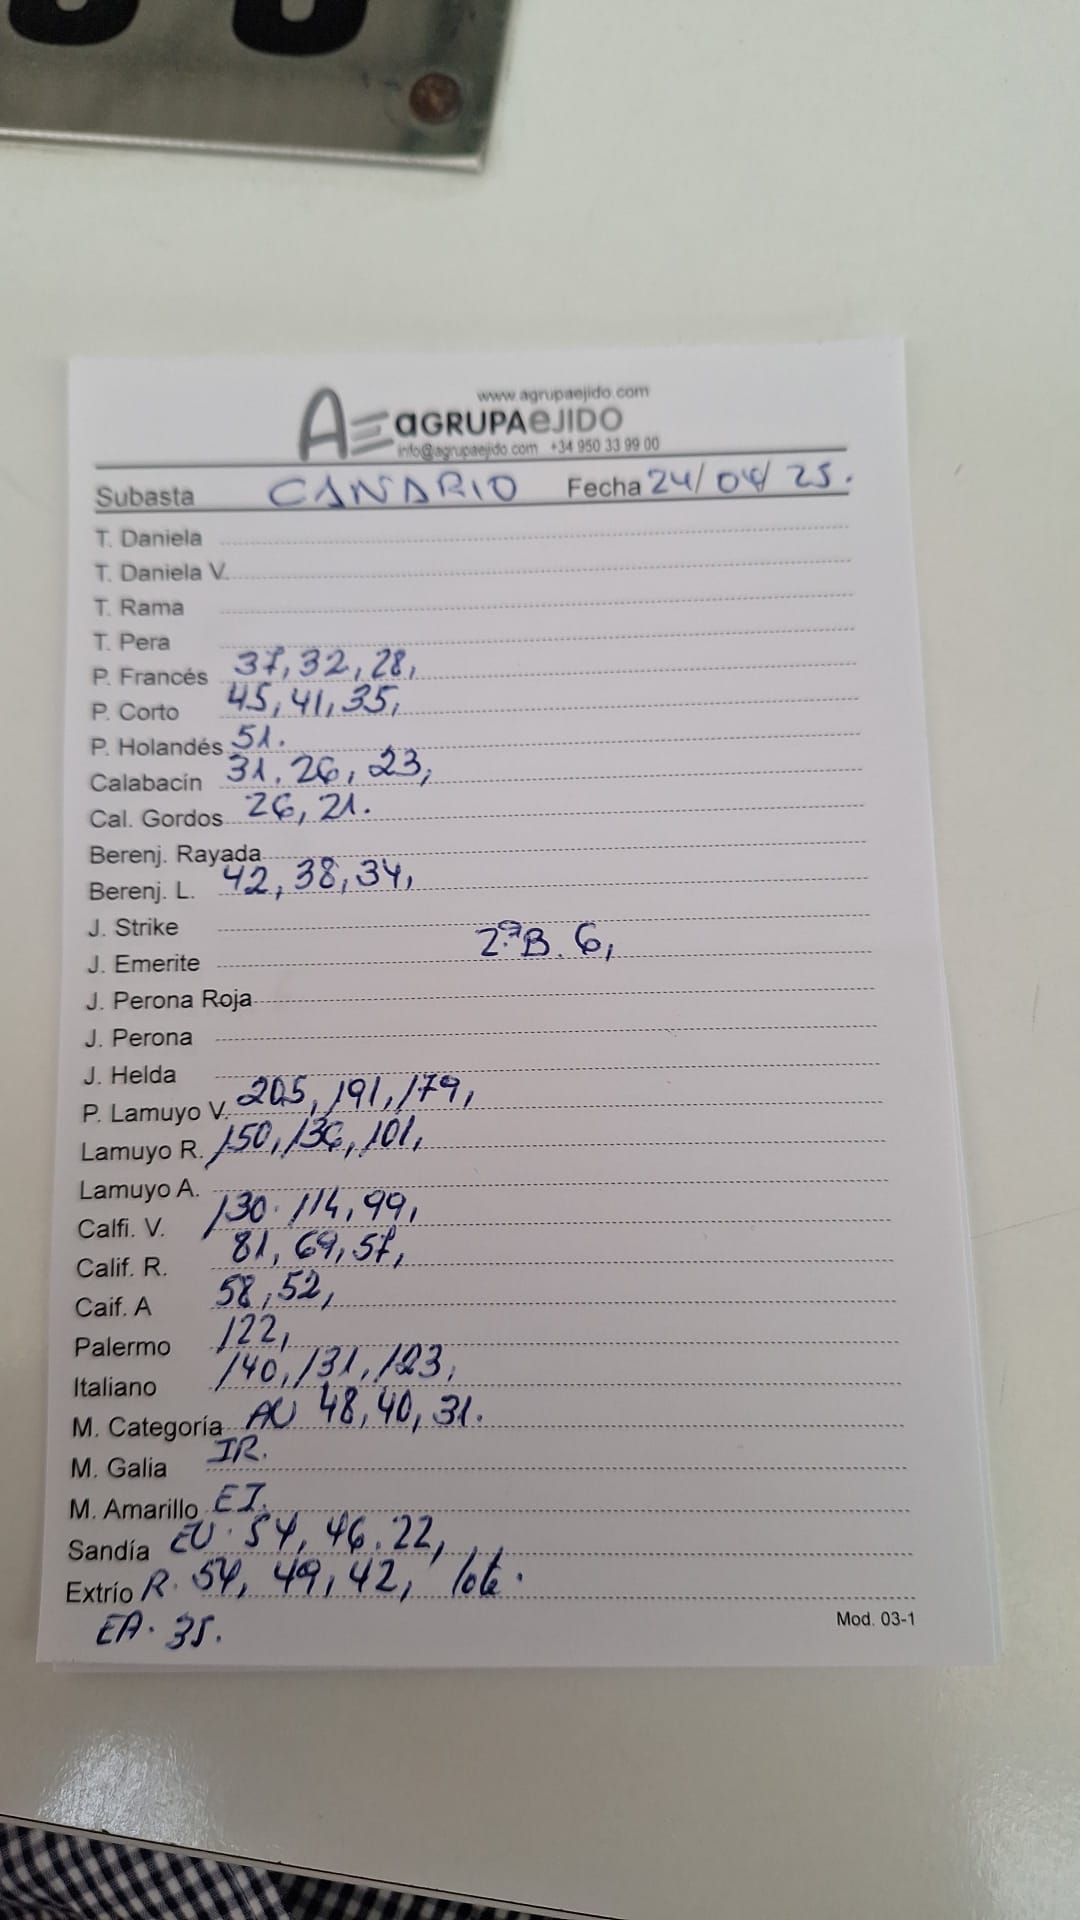 www.agrupaejido.com
AE aGRUPAeJIDO
info@agrupaejido.com +34 950 33 99 00
Subasta CANARIO Fecha 24/04/25.
T. Daniela
T. Daniela V.
T. Rama
T. Pera
P. Francés 37, 32, 28,
P. Corto 45, 41, 35,
P. Holandés 51.
Calabacín 31. 26, 23,
Cal. Gordos 26, 21.
Berenj. Rayada
Berenj. L. 42, 38, 34,
J. Strike
J. Emerite 2.ªB. 6,
J. Perona Roja
J. Perona
J. Helda
P. Lamuyo V. 205, 191, 179,
Lamuyo R. 150, 136, 101,
Lamuyo A.
Calfi. V. 130. 114, 99,
Calif. R. 81, 69, 57,
Caif. A 58, 52,
Palermo 122,
Italiano 140, 131, 123,
M. Categoría AU 48, 40, 31.
M. Galia IR.
M. Amarillo EI.
Sandía EU. 54, 46. 22,
Extrío R. 54, 49, 42, lote.
EA. 35.
Mod. 03-1